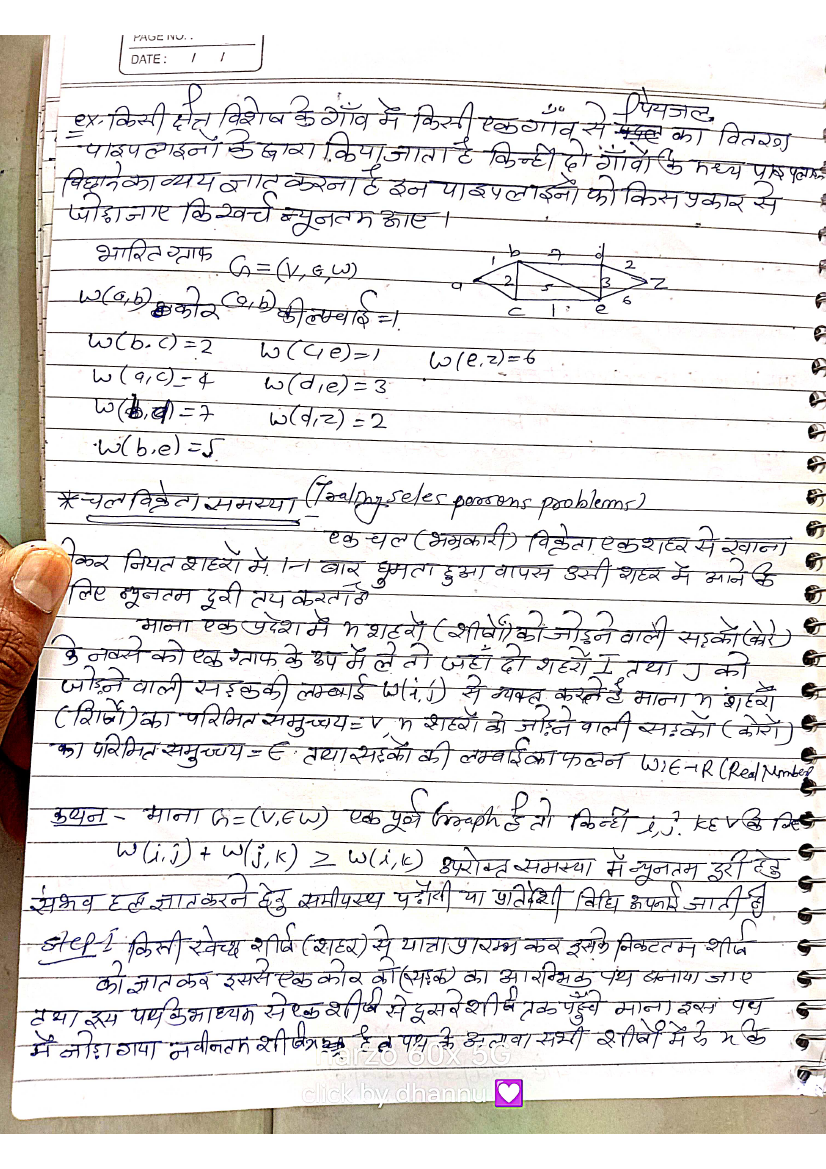 PAGE NO.:
DATE: / /
ex- किसी क्षेत्र विशेष के गाँव में किसी एक गाँव से पेयजल का वितरण
पाइपलाइनों के द्वारा किया जाता है किन्ही दो गाँवों के मध्य पाइपलाइन
बिछाने का व्यय ज्ञात करना है इन पाइपलाइनों को किस प्रकार से
जोड़ा जाए कि खर्च न्यूनतम आए।
भारित ग्राफ G=(V,E,W)
a b d z c e 1 7 2 2 5 3 1 6
W(a,b) कोर (a,b) की लम्बाई =1.
W(b,c)=2 W(c,e)=1 W(e,z)=6
W(a,c)=4 W(d,e)=3
W(b,d)=7 W(d,z)=2
W(b,e)=5
* चल विक्रेता समस्या (Tralping seles porsons problems)
एक चल (भ्रमणकारी) विक्रेता एक शहर से रवाना
होकर नियत शहरों में 1-1 बार घुमता हुआ वापस उसी शहर में आने के
लिए न्यूनतम दूरी तय करता है
माना एक प्रदेश में n शहरों (शीर्षों) को जोड़ने वाली सड़कों (कोरे)
के नक्से को एक ग्राफ के रूप में ले तो जहाँ दो शहरों I तथा J को
जोड़ने वाली सड़क की लम्बाई W(i,j) से व्यक्त करते है माना n शहरों
(शिर्षों) का परिमित समुच्चय = V, n शहरों को जोड़ने वाली सड़कों (कोरों)
का परिमित समुच्च्य = E. तथा सड़कों की लम्बाई का फलन W:E→R (Real Number
कथन - माना G=(V,E,W) एक पूर्ण Graph है तो किन्ही i,j. k∈V के लिए
W(i,j) + W(j,k) ≥ W(i,k) उपरोक्त समस्या में न्यूनतम दुरी हेतु
संभव हल ज्ञात करने हेतु समीपस्थ पड़ौसी या प्रतिवेशी विधि अपनाई जाती है
Step I किसी स्वेच्छ शीर्ष (शहर) से यात्रा प्रारम्भ कर इसके निकटतम शीर्ष
को ज्ञात कर इससे एक कोर को (सड़क) का आरम्भिक पथ बनाया जाए
तथा इस पथ के माध्यम से एक शीर्ष से दूसरे शीर्ष तक पहुँचे माना इस पथ
में जोड़ा गया नवीनतम शीर्ष है तो पथ के अलावा सभी शीर्षों में से n के
narzo 60x 5G
click by dhannu